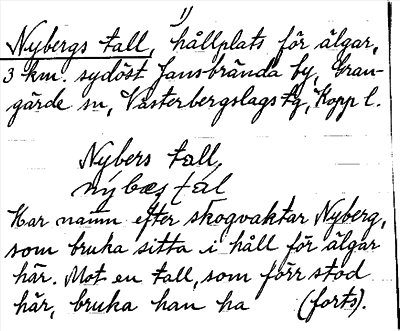 1)
Nybergs tall, hållplats för älgar,
3 km. sydöst Jansbrända by, Gran-
gärde sn, Västerbergslags tg, Kopp l.
Nybers tall,
nýbæs tal
Har namn efter skogvaktar Nyberg,
som bruka sitta i håll för älgar
här. Mot en tall, som förr stod
här, bruka han ha (forts).